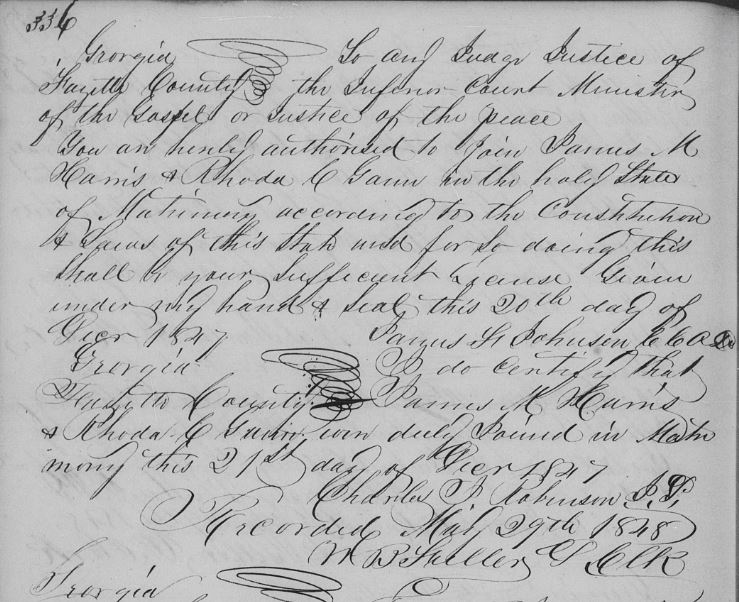 336
Georgia To any Judge Justice of
Fayette County the Inferior Court Minister
of the Gospel or Justice of the peace
You are hereby authorised to join James M
Harris & Rhoda C Gann in the holy State
of Matrimony according to the Constitution
& Laws of this State and for so doing this
Shall be your Sufficient License Given
under my hand & seal this 20th day of
1847 James Johnson C C O
Georgia I do certify that
Fayette County James M Harris
& Rhoda C Gann were duly Joined in Matri
mony this 21st day of 1847
Charles Robinson J.P.
Recorded May 29th 1848
W B Fuller Clk
Georgia